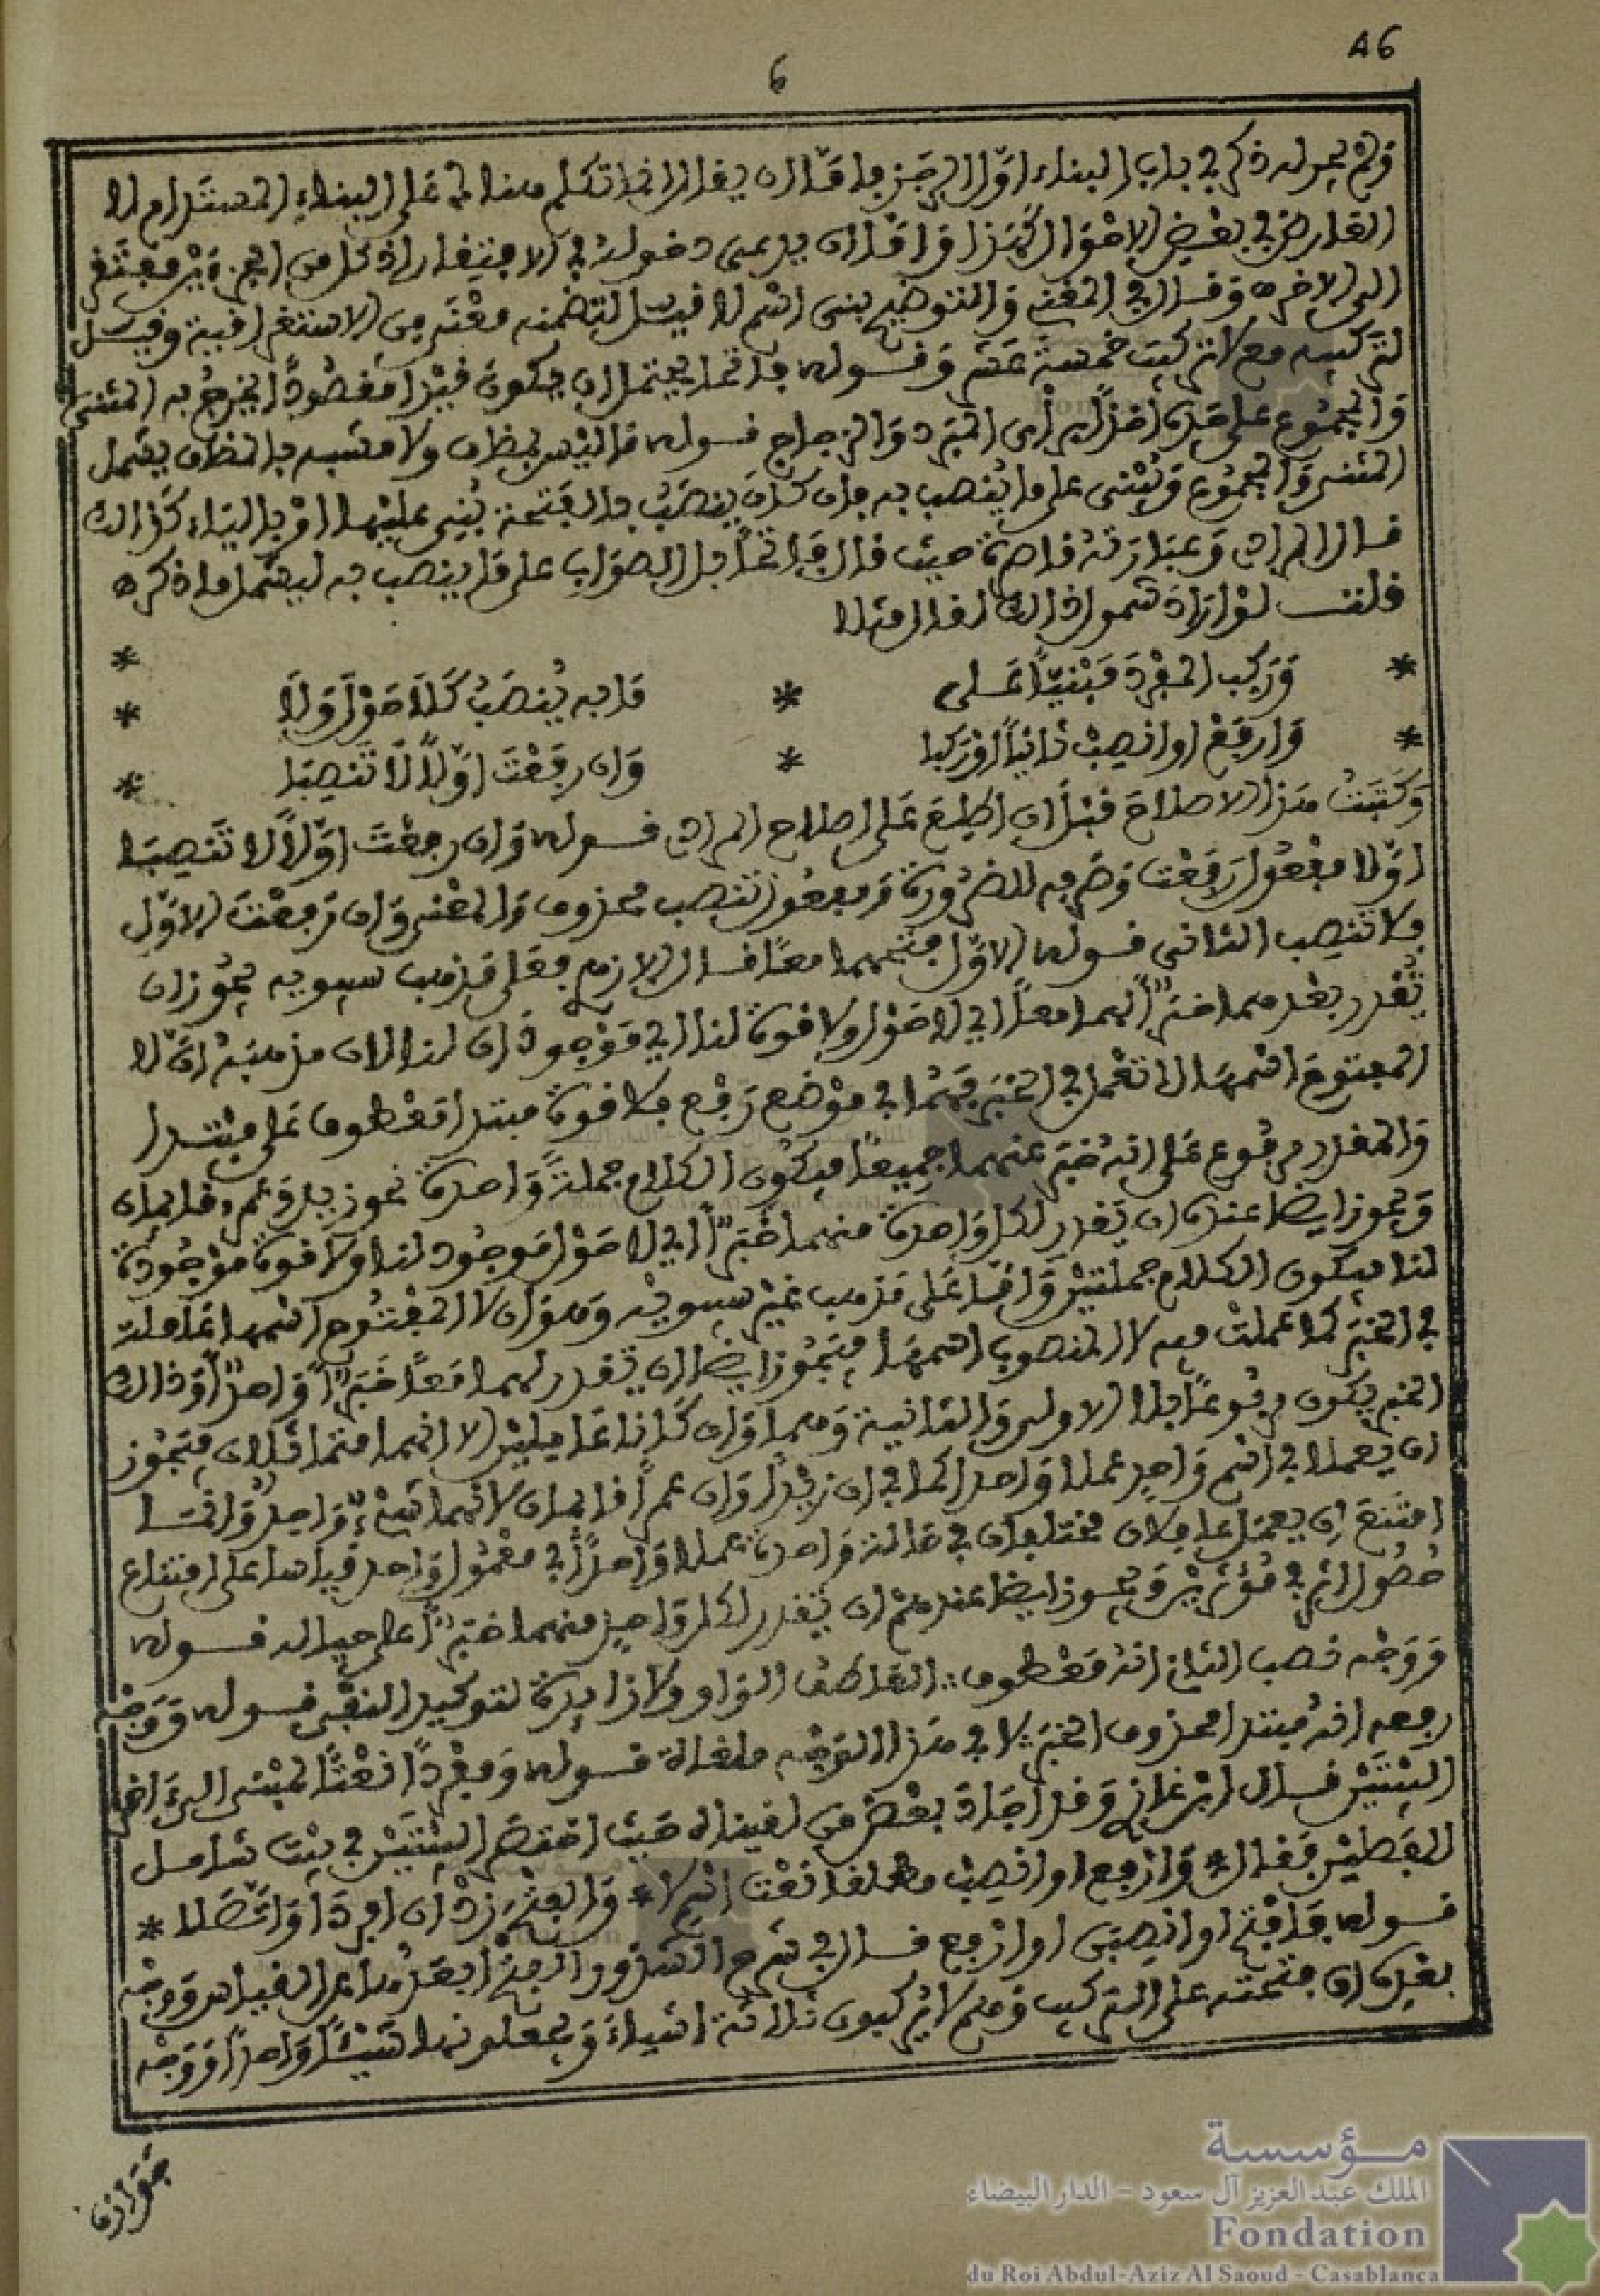 46
6
ولم يجر له ذكر في باب البناء أول الرجز فإما أن يقال إنما تكلم هنالك على البناء المستدام لا
العارض في بعض الأحوال كهذا وإما أن يدعى دخوله في الافتقار إذ كل من الجزءين مفتقر
إلى الآخر وقال في المغني والتوضيح بني اسم لا قيل لتضمنه معنى من الاستغراقية وقيل
لتركيبه مع لا تركيب خمسة عشر وقوله فاتحا يحتمل أن يكون قيدا مقصودا يخرج به المثنى
والمجموع على حده أخذا برأي المبرد والزجاج قوله ما ليس بمضاف ولا مشبه بالمضاف يشمل
المثنى والمجموع ويبنى على ما ينصب به فإن كان ينصب بالفتحة بني عليها أو بالياء كذلك
قال المرادي وعبارته قاصرة حيث قال فاتحا بل الصواب على ما ينصب به ليشمل ما ذكره
قلت لو أراد شمول ذلك لقال مثلا
* وركب المفرد مبنيا على * ما به ينصب كلا حول ولا *
* وارفع أو انصب ثانيا أو ركبا * وإن رفعت أولا لا تنصبا *
وكتبت هذا الإصلاح قبل أن أطلع على إصلاح المرادي قوله وإن رفعت أولا لا تنصبا
أولا مفعول رفعت وصرفه للضرورة ومفعول تنصب محذوف والمعنى وإن رفعت الأول
فلا تنصب الثاني قوله الأول فتحهما معا قال الأزهري فعلى مذهب سيبويه يجوز أن
يقدر بعدهما خبر لهما معا أي لا حول ولا قوة لنا أي موجودان لنا لأن مذهبه أن لا
المفتوح اسمها لا تعمل في الخبر فهما في موضع رفع فلا قوة مبتدأ معطوف على مبتدإ
والمقدر مرفوع على أنه خبر عنهما جميعا فيكون الكلام جملة واحدة نحو زيد وعمرو قائمان
ويجوز أيضا عنده أن يقدر لكل واحدة منهما خبر أي لا حول موجود لنا ولا قوة موجودة
لنا فيكون الكلام جملتين وأما على مذهب غير سيبويه وهو أن لا المفتوح اسمها عاملة
في الخبر كما عملت فيه لا المنصوب اسمها فيجوز أيضا أن يقدر لهما معا خبر واحد وذلك
الخبر يكون مرفوعا بلا الأولى والثانية وهما وإن كانا عاملين إلا أنهما متماثلان فيجوز
أن يعملا في اسم واحد عملا واحدا كما في إن زيدا وإن عمرا قائمان لأنهما شيء واحد وإنما
امتنع أن يعمل عاملان مختلفان في حالة واحدة عملا واحدا في معمول واحد قياسا على امتناع
حصول أثر في مؤثرين ويجوز أيضا عندهم أن يقدر لكل واحد منهما خبر على حياله قوله
ووجه نصب الثاني أنه معطوف العاطف الواو ولا زائدة لتوكيد النفي قوله ووجه
رفعه أنه مبتدأ محذوف الخبر لا في هذا الوجه ملغاة قوله ومفردا نعتا لمبني إلى آخر
البيتين قال ابن غازي وقد أجاد بعض من لقيناه حيث اختصر البيتين في بيت شامل
القطين فقال * وارفع أو انصب مطلقا نعت اسم لا * والفتح زد إن أفردا واتصلا *
قوله فافتح أو انصبن أو ارفع قال في شرح الشذور والفتح أبعدها عن القياس ووجه
بعده أن فتحته على التركيب وهم لا يركبون ثلاثة أشياء ويجعلونها شيئا واحدا ووجه
جوازه
مؤسسة
الملك عبد العزيز آل سعود - الدار البيضاء
Fondation
du Roi Abdul-Aziz Al Saoud - Casablanca